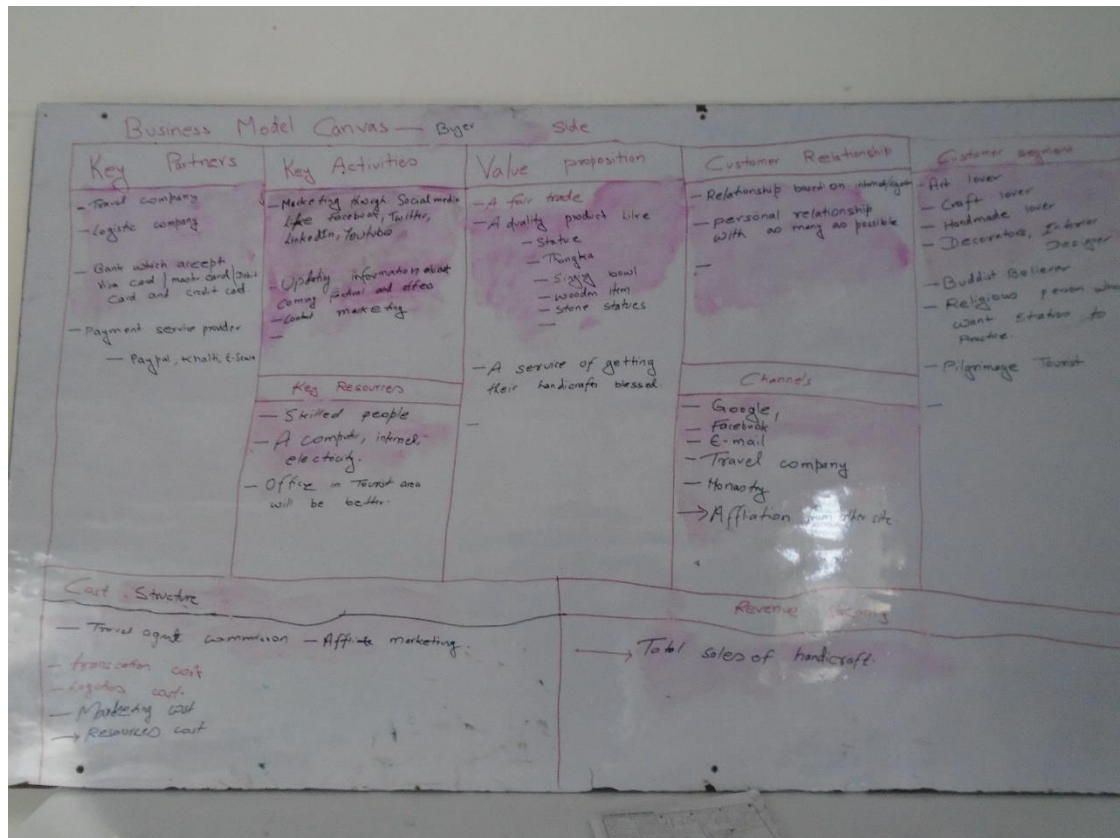 Business Model Canvas — Buyer Side
Key Partners
- Travel company
- Logistic company
- Bank which accept
Visa card / master card / Debit
Card and credit card.
- Payment service provider
- Paypal, Khalti, E-Sewa
Key Activities
- Marketing though Social media
Like Facebook, Twitter,
LinkedIn, Youtube
- Updating information about
Coming and offers
- marketing
-
Key Resources
- Skilled people
- A computer, internet,
electricity.
- Office in Tourist area
will be better.
Value proposition
- A fair trade
- A quality product Like
- Statue
- Thangka
- bowl
- Wooden item
- Stone statues
-
- A service of getting
their handicrafts blessed.
-
Customer Relationship
- Relationship based on
- personal relationship
with as many as possible
-
Channels
- Google,
- Facebook
- E-mail
- Travel company
- Monastry
→ Affliation from other site
Customer segment
- Art lover
- Craft lover
- Handmade lover
- Decorators, Interior
Designer
- Buddist Believer
- Religious person who
want Statues to
Practice.
- Pilgrimage Tourist
-
Cost Structure
- Travel agent commission - Affiliate marketing.
- transcation cost
- Logistics cost.
- Marketing cost
→ Resources cost
Revenue
→ Total sales of handicraft.